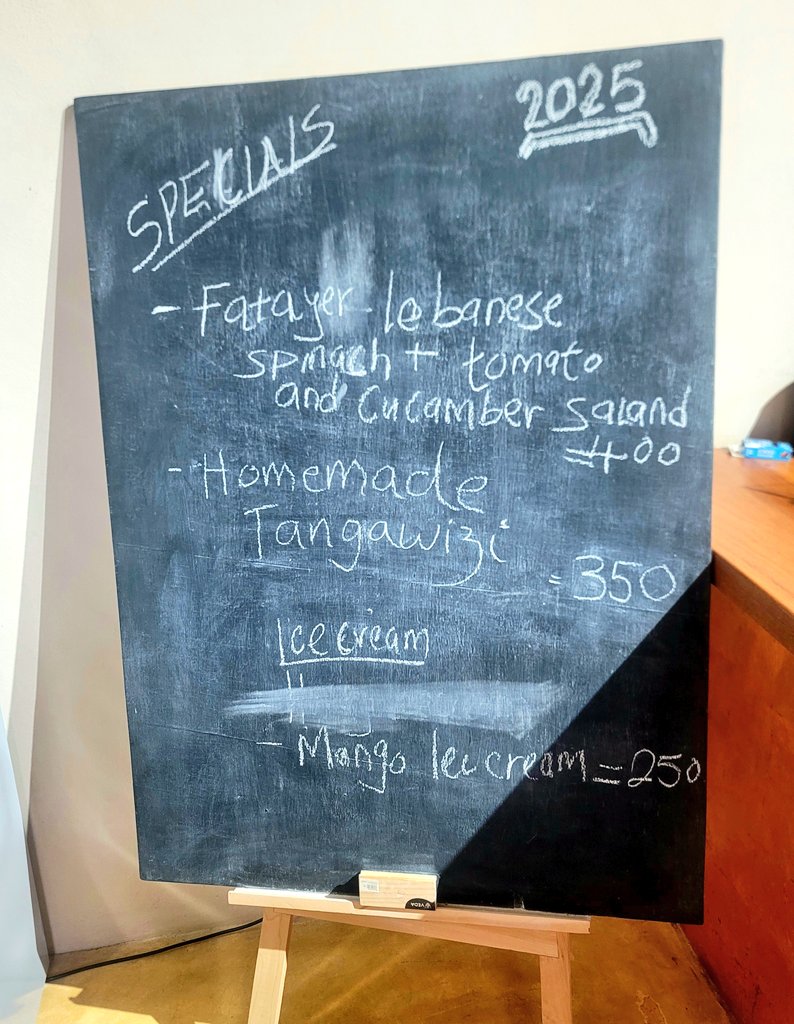 2025
SPECIALS
- Fatayer lebanese
spinach + tomato
and cucamber saland
=400
- Homemade
Tangawizi
= 350
Ice cream
- Mango Ice cream = 250
VEDA